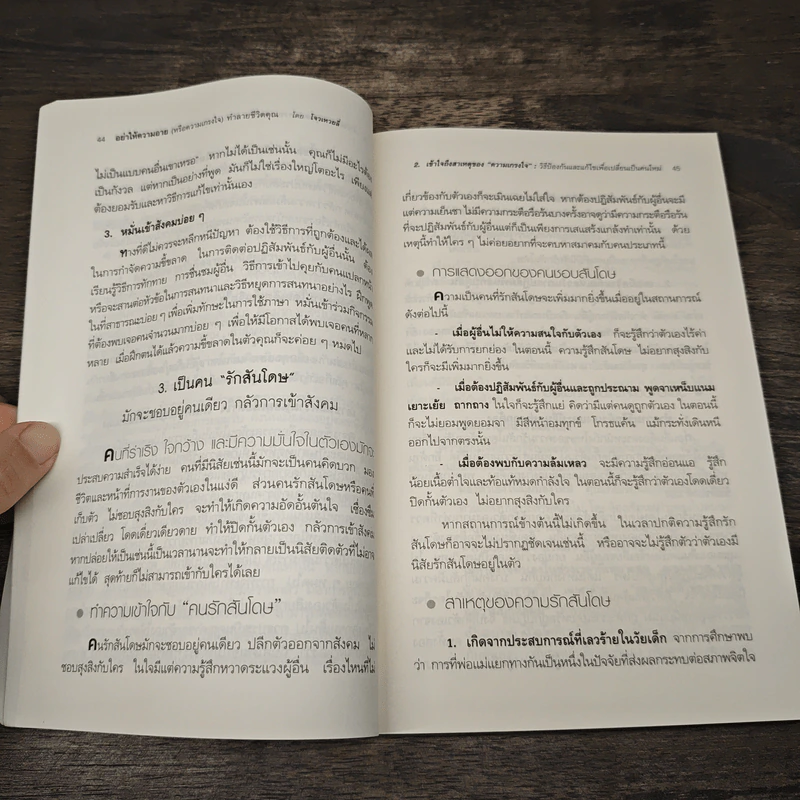 44 อย่าให้ความอาย (หรือความเกรงใจ) ทำลายชีวิตคุณ โดย โจวเหวยลี่
ไม่เป็นแบบคนอื่นเขาเหรอ" หากไม่ได้เป็นเช่นนั้น คุณก็ไม่มีอะไรต้อง
เป็นกังวล แต่หากเป็นอย่างที่พูด มันก็ไม่ใช่เรื่องใหญ่โตอะไร เพียงแต่
ต้องยอมรับและหาวิธีการแก้ไขเท่านั้นเอง
3. หมั่นเข้าสังคมบ่อย ๆ
ทางที่ดีไม่ควรจะหลีกหนีปัญหา ต้องใช้วิธีการที่ถูกต้องและได้ผล
ในการกำจัดความขี้ขลาด ในการติดต่อปฏิสัมพันธ์กับผู้อื่นนั้น ต้อง
เรียนรู้วิธีการทักทาย การชื่นชมผู้อื่น วิธีการเข้าไปคุยกับคนแปลกหน้า
หรือจะสานต่อหัวข้อในการสนทนาและวิธีหยุดการสนทนาอย่างไร ฝึกพูด
ในที่สาธารณะบ่อย ๆ เพื่อเพิ่มทักษะในการใช้ภาษา หมั่นเข้าร่วมกิจกรรม
ที่ต้องพบเจอคนจำนวนมากบ่อย ๆ เพื่อให้มีโอกาสได้พบเจอคนที่หลาก
หลาย เมื่อฝึกตนได้แล้วความขี้ขลาดในตัวคุณก็จะค่อย ๆ หมดไป
3. เป็นคน "รักสันโดษ"
มักจะชอบอยู่คนเดียว กลัวการเข้าสังคม
คนที่ร่าเริง ใจกว้าง และมีความมั่นใจในตัวเองมักจะ
ประสบความสำเร็จได้ง่าย คนที่มีนิสัยเช่นนี้มักจะเป็นคนคิดบวก มอง
ชีวิตและหน้าที่การงานของตัวเองในแง่ดี ส่วนคนรักสันโดษหรือคนที่
เก็บตัว ไม่ชอบสุงสิงกับใคร จะทำให้เกิดความอัดอั้นตันใจ เซื่องซึม
เปล่าเปลี่ยว โดดเดี่ยวเดียวดาย ทำให้ปิดกั้นตัวเอง กลัวการเข้าสังคม
หากปล่อยให้เป็นเช่นนี้เป็นเวลานานจะทำให้กลายเป็นนิสัยติดตัวที่ไม่อาจ
แก้ไขได้ สุดท้ายก็ไม่สามารถเข้ากับใครได้เลย
ทำความเข้าใจกับ "คนรักสันโดษ"
คนรักสันโดษมักจะชอบอยู่คนเดียว ปลีกตัวออกจากสังคม ไม่
ชอบสุงสิงกับใคร ในใจมีแต่ความรู้สึกหวาดระแวงผู้อื่น เรื่องไหนที่ไม่
2. เข้าใจถึงสาเหตุของ "ความเกรงใจ" : วิธีป้องกันและแก้ไขเพื่อเปลี่ยนเป็นคนใหม่ 45
เกี่ยวข้องกับตัวเองก็จะเมินเฉยไม่ใส่ใจ หากต้องปฏิสัมพันธ์กับผู้อื่นจะมี
แต่ความเย็นชา ไม่มีความกระตือรือร้นบางครั้งอาจดูว่ามีความกระตือรือร้น
ที่จะปฏิสัมพันธ์กับผู้อื่นแต่ก็เป็นเพียงการเสแสร้งแกล้งทำเท่านั้น ด้วย
เหตุนี้ทำให้ใคร ๆ ไม่ค่อยอยากที่จะคบหาสมาคมกับคนประเภทนี้
การแสดงออกของคนชอบสันโดษ
ความเป็นคนที่รักสันโดษจะเพิ่มมากยิ่งขึ้นเมื่ออยู่ในสถานการณ์
ดังต่อไปนี้
- เมื่อผู้อื่นไม่ให้ความสนใจกับตัวเอง ก็จะรู้สึกว่าตัวเองไร้ค่า
และไม่ได้รับการยกย่อง ในตอนนี้ ความรู้สึกสันโดษ ไม่อยากสุงสิงกับ
ใครก็จะมีเพิ่มมากยิ่งขึ้น
- เมื่อต้องปฏิสัมพันธ์กับผู้อื่นและถูกประณาม พูดจาเหน็บแนม
เยาะเย้ย ถากถาง ในใจก็จะรู้สึกแย่ คิดว่ามีแต่คนดูถูกตัวเอง ในตอนนี้
ก็จะไม่ยอมพูดยอมจา มีสีหน้าอมทุกข์ โกรธแค้น แม้กระทั่งเดินหนี
ออกไปจากตรงนั้น
- เมื่อต้องพบกับความล้มเหลว จะมีความรู้สึกอ่อนแอ รู้สึก
น้อยเนื้อต่ำใจและท้อแท้หมดกำลังใจ ในตอนนี้ก็จะรู้สึกว่าตัวเองโดดเดี่ยว
ปิดกั้นตัวเอง ไม่อยากสุงสิงกับใคร
หากสถานการณ์ข้างต้นนี้ไม่เกิดขึ้น ในเวลาปกติความรู้สึกรัก
สันโดษก็อาจจะไม่ปรากฏชัดเจนเช่นนี้ หรืออาจจะไม่รู้สึกตัวว่าตัวเองมี
นิสัยรักสันโดษอยู่ในตัว
สาเหตุของความรักสันโดษ
1. เกิดจากประสบการณ์ที่เลวร้ายในวัยเด็ก จากการศึกษาพบ
ว่า การที่พ่อแม่แยกทางกันเป็นหนึ่งในปัจจัยที่ส่งผลกระทบต่อสภาพจิตใจ